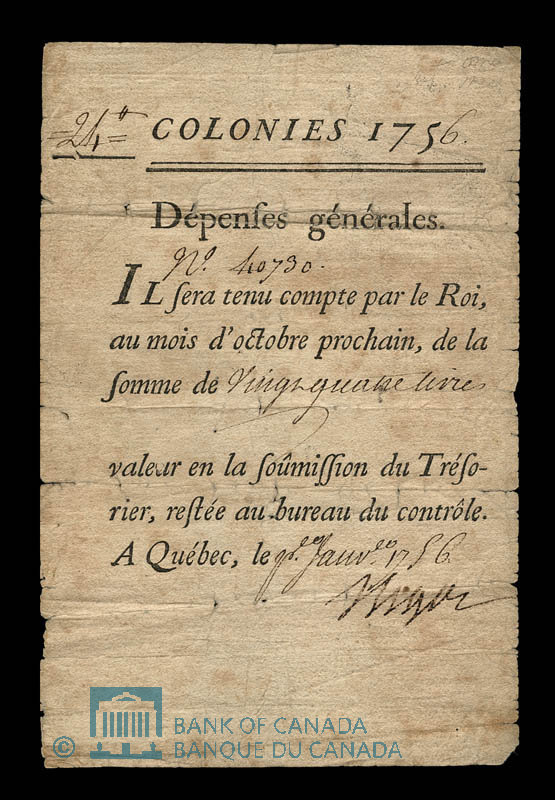 =24ᵗᵗ= COLONIES 1756.
Dépenſes générales.
N.º 40730.
IL ſera tenu compte par le Roi,
au mois d'octobre prochain, de la
ſomme de vingt quatre livres
valeur en la ſoûmiſſion du Tréſo-
rier, reſtée au bureau du contrôle.
A Québec, le Janv. 1756
© BANK OF CANADA
BANQUE DU CANADA